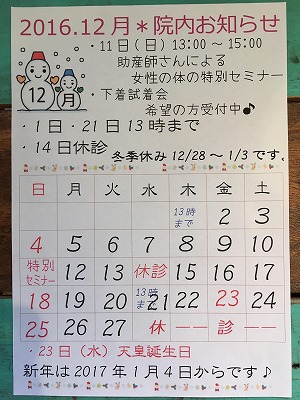 2016.12月＊院内お知らせ
・11日(日)13:00～15:00
助産師さんによる
女性の体の特別セミナー
・下着試着会
希望の方受付中♪
12 月
・1日・21日13時まで
・14日休診
冬季休み12/28～1/3です。
日 月 火 水 木 金 土
13時まで 2 3
4 5 6 7 8 9 10
特別セミナー 12 13 休診 15 16 17
18 19 20 13時まで 21 22 23 24
25 26 27 休 ―― 診 ――
・23日(水)天皇誕生日
新年は2017年1月4日からです♪